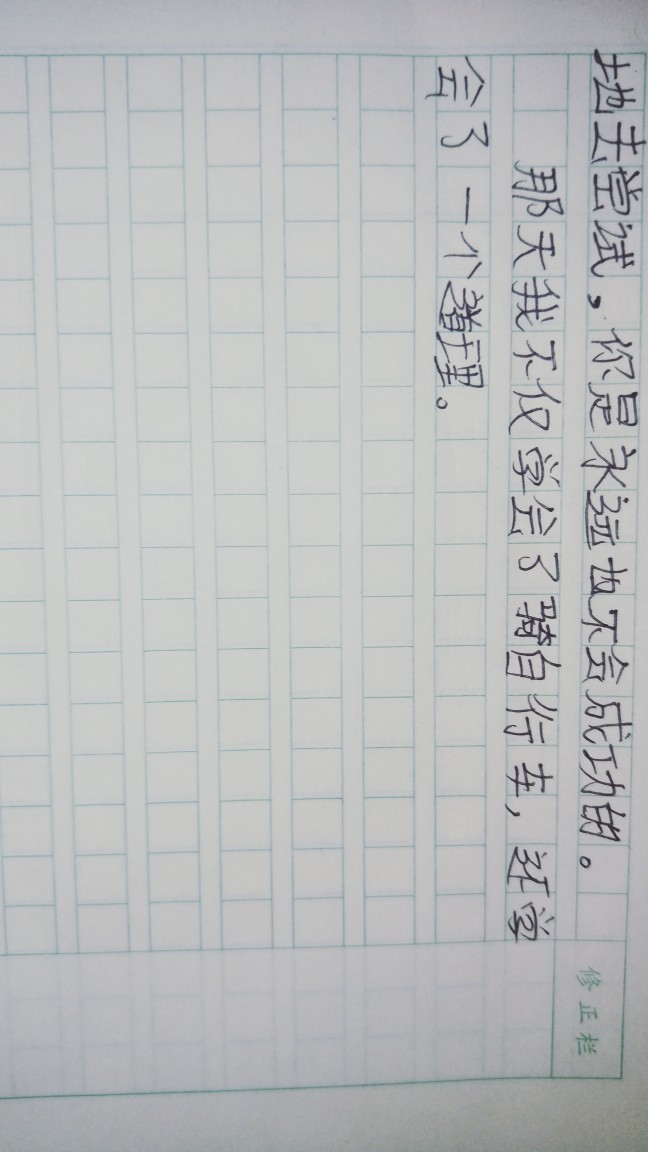 地去尝试，你是永远也不会成功的。
那天我不仅学会了骑自行车，还学
会了一个道理。
修正栏